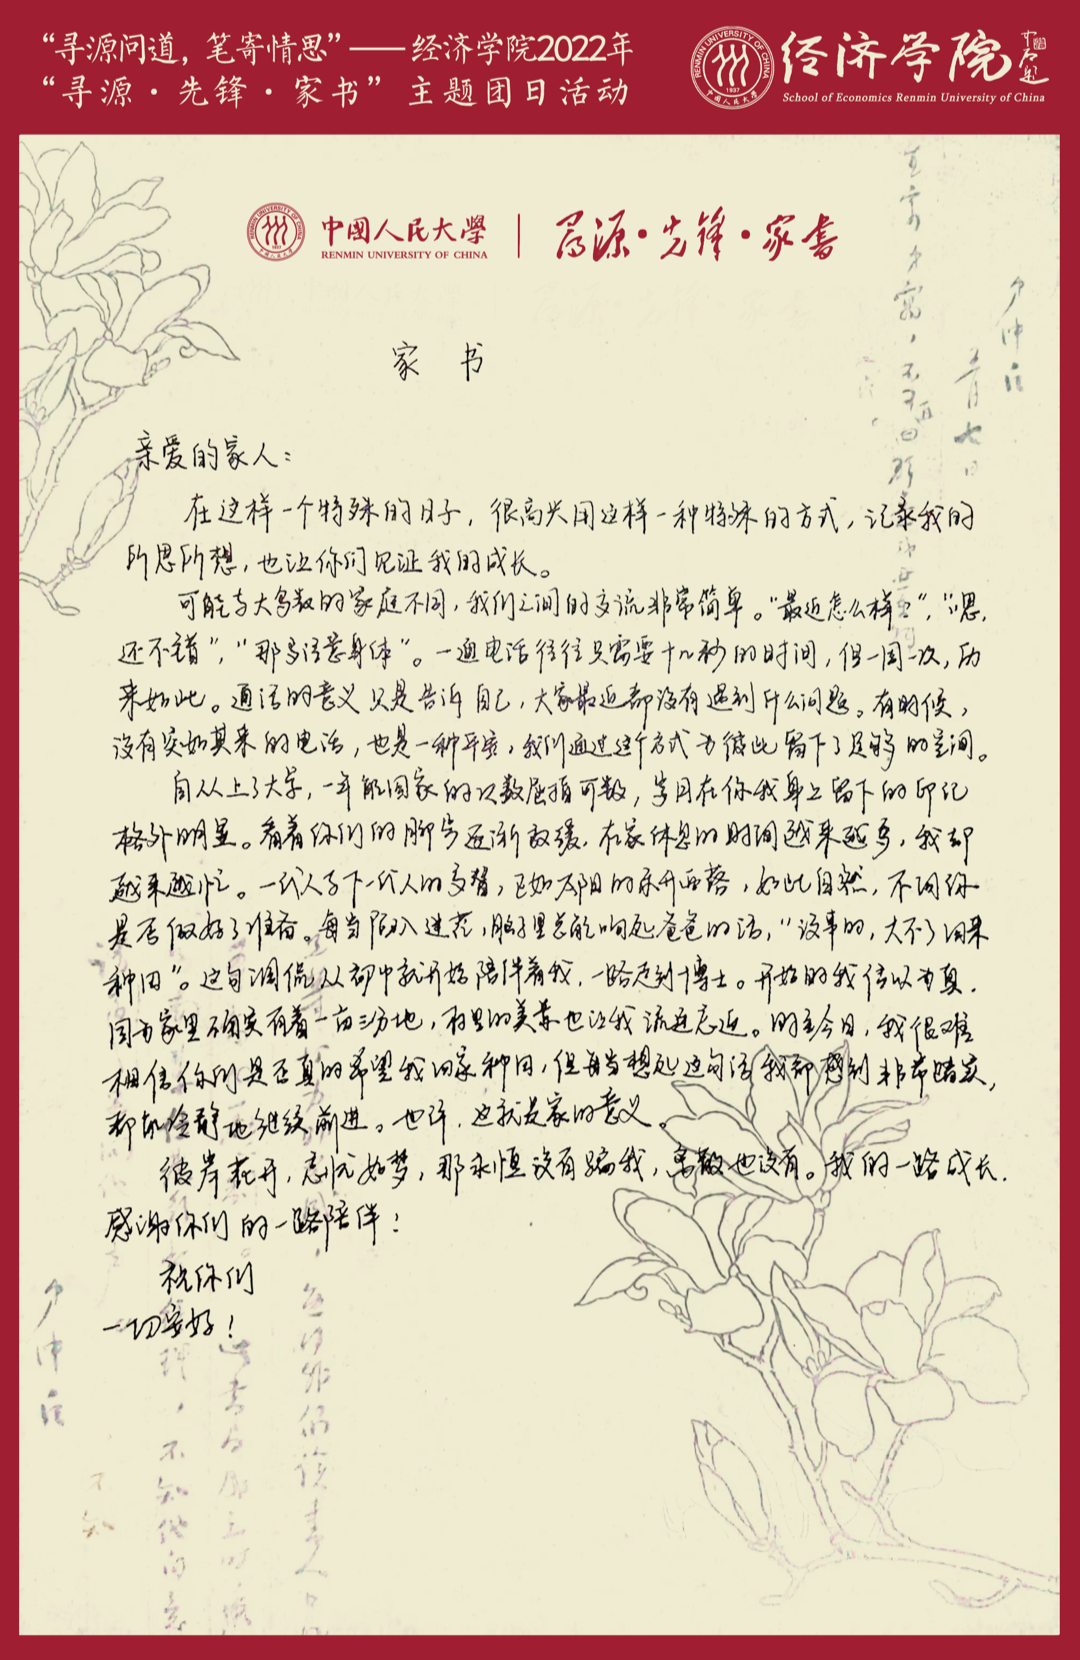 “寻源问道，笔寄情思”——经济学院2022年
“寻源·先锋·家书”主题团日活动
经济学院
School of Economics Renmin University of China
RENMIN UNIVERSITY OF CHINA
1937
中国人民大学
中國人民大學
RENMIN UNIVERSITY OF CHINA
寻源·先锋·家书
家 书
亲爱的家人：
在这样一个特殊的日子，很高兴用这样一种特殊的方式，记录我的
所思所想，也让你们见证我的成长。
可能与大多数的家庭不同，我们之间的交流非常简单。“最近怎么样”，“嗯，
还不错”，“那多注意身体”。一通电话往往只需要十几秒的时间，但一周一次，历
来如此。通话的意义只是告诉自己，大家最近都没有遇到什么问题。有时候，
没有突如其来的电话，也是一种平安，我们通过这个方式为彼此留下了足够的空间。
自从上了大学，一年能回家的次数屈指可数，岁月在你我身上留下的印记
格外明显。看着你们的脚步逐渐放缓，在家休息的时间越来越多，我却
越来越忙。一代人与下一代人的交替，已如太阳的东升西落，如此自然，不问你
是否做好了准备。每当陷入迷茫，脑子里总能响起爸爸的话，“没事的，大不了回来
种田”。这句调侃从初中就开始陪伴着我，一路走到博士。开始的我信以为真，
因为家里确实有着一亩三分地，村里的美景也让我流连忘返。时至今日，我很难
相信你们是否真的希望我回家种田，但每当想起这句话我都感到非常踏实，
都能冷静地继续前进。也许，这就是家的意义。
彼岸花开，忘忧如梦，那永恒没有骗我，离散也没有。我的一路成长，
感谢你们的一路陪伴！
祝你们
一切安好！